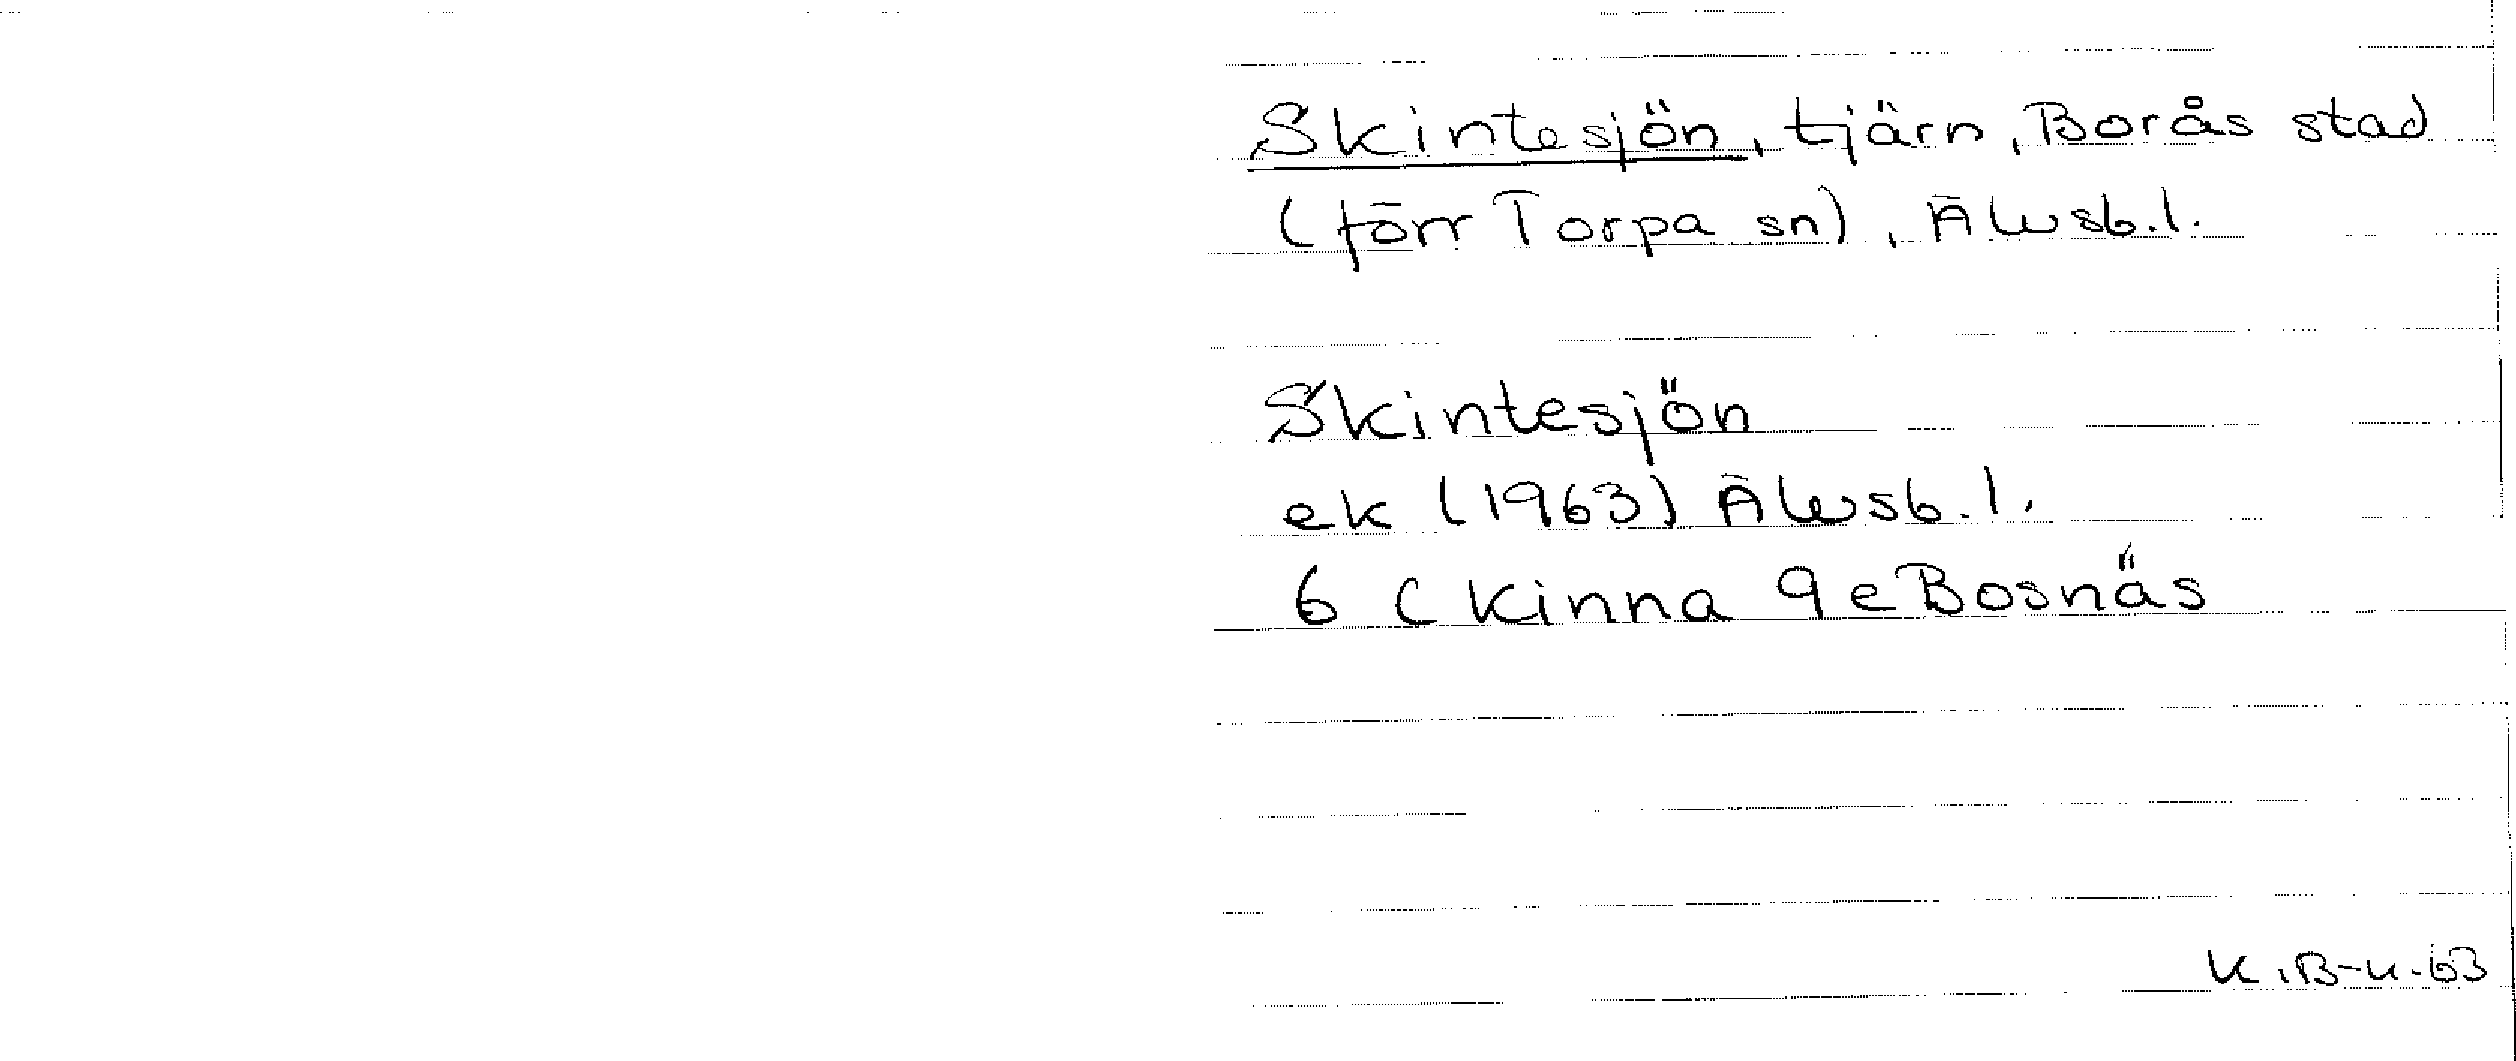 Skintesjön, tjärn, Borås stad
(förr Torpa sn), Älvsb.l.
Skintesjön
ek (1963) Älvsb.l.
6 C Kinna 9e Bosnäs
K.B-K.63